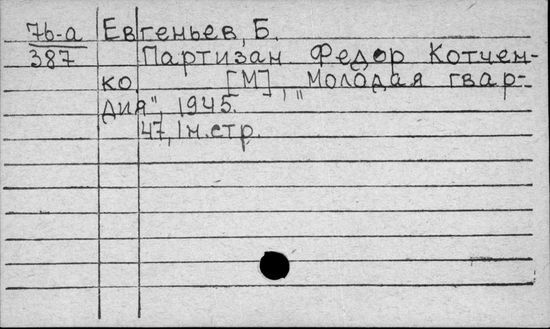 76-а Евгеньев, Б.
387 Партизан Федор Котчен-
ко [М], „Молодая гвар-
дия", 1945.
47, 1 н.стр.